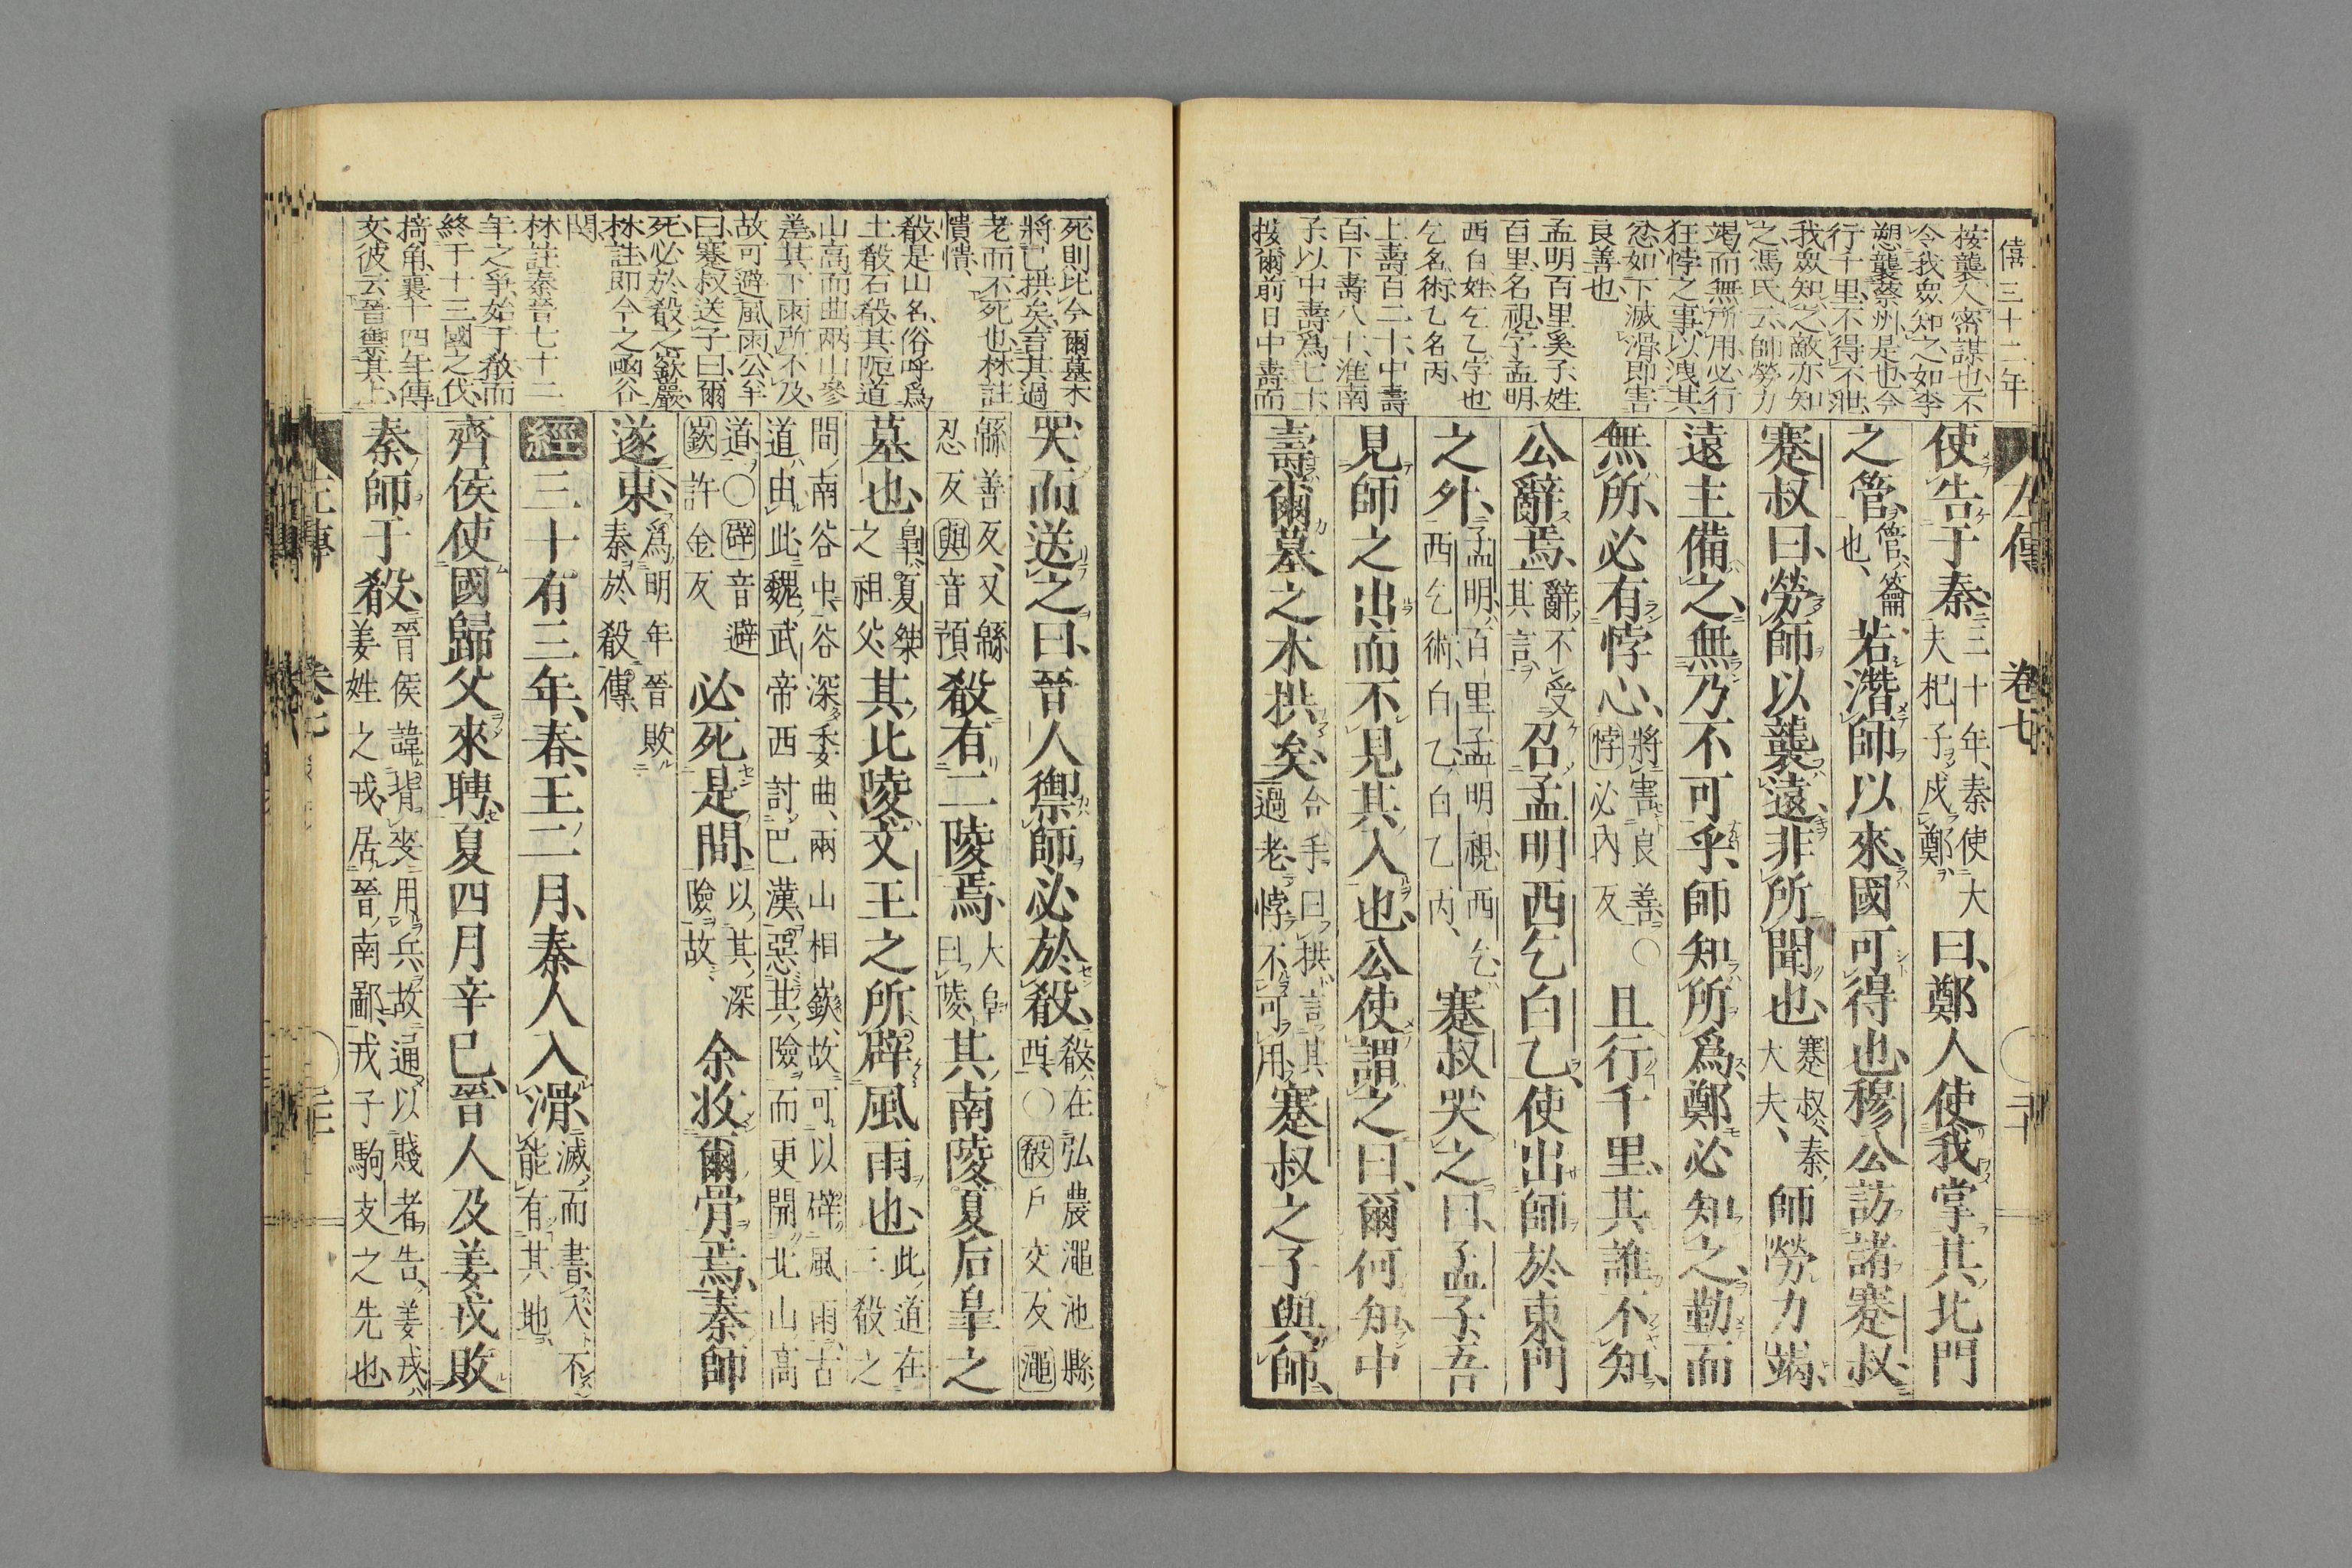 僖三十二年
按襲人密謀也不
令我衆知之如李
愬襲蔡州是也今
行千里不得不泄
我衆知之敵亦知
之馮氏云師勞力
竭而無所用必行
狂悖之事以洩其
忿如下滅滑即害
良善也
孟明百里奚子姓
百里名視字孟明
西自姓乞乙字也
乞名術乙名丙
上壽百二十中壽
百下壽八十淮南
子以中壽爲七十
按爾前日中壽而
卷七
使告于秦三十年秦使大夫杞子戍鄭曰鄭人使我掌其北門
之管管籥也若潛師以來國可得也穆公訪諸蹇叔
蹇叔曰勞師以襲遠非所聞也蹇叔秦大夫師勞力竭
遠主備之無乃不可乎師知所爲鄭必知之勤而
無所必有悖心將害良善〇悖必內反且行千里其誰不知
公辭焉辭不受其言召孟明西乞白乙使出師於東門
之外孟明百里孟明視西乞西乞術白乙白乙丙蹇叔哭之曰孟子吾
見師之出而不見其入也公使謂之曰爾何知中
壽爾墓之木拱矣合手曰拱言其過老悖不可用蹇叔之子與師
死則比今爾墓木
將已拱矣言其過
老而不死也林註
憒憒
殽是山名俗呼爲
土殽石殽其阨道
山高而曲兩山參
差其下雨所不及
故可避風雨公羊
曰蹇叔送子曰爾
死必於殽之嶔巖
林註即今之凾谷
関
林註秦晉七十二
年之爭始于殽而
終于十三國之伐
掎角襄十四年傳
文彼云晉禦其上
哭而送之曰晉人禦師必於殽殽在弘農澠池縣西〇殽戶交反澠
緜善反又緜忍反與音預殽有二陵焉大阜曰陵其南陵夏后皐之
墓也皐夏桀之祖父其北陵文王之所辟風雨也此道在二殽之
間南谷中谷深委曲兩山相嶔故可以辟風雨古道由此魏武帝西討巴漢惡其險而更開北山高
道〇辟音避嶔許金反必死是間以其深險故余收爾骨焉秦師
遂東爲明年晉敗秦於殽傳
經三十有三年春王二月秦人入滑滅而書入不能有其地
齊侯使國歸父來聘夏四月辛巳晉人及姜戎敗
秦師于殽晉侯諱背喪用兵故通以賤者告姜戎姜姓之戎居晉南鄙戎子駒支之先也